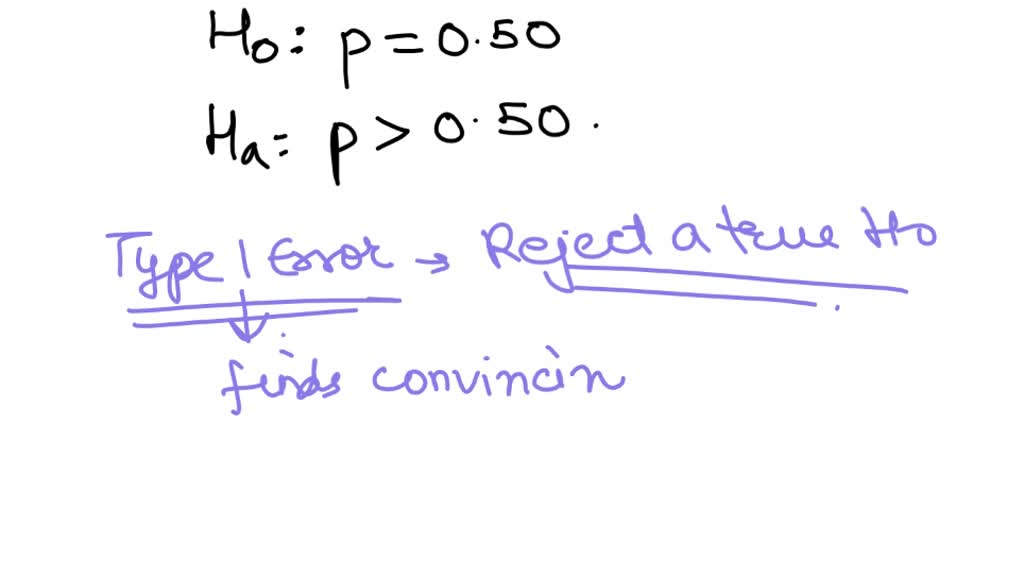 Ho: p = 0.50
Ha: p > 0.50.
Type 1 Error → Reject a true Ho
finds convincin